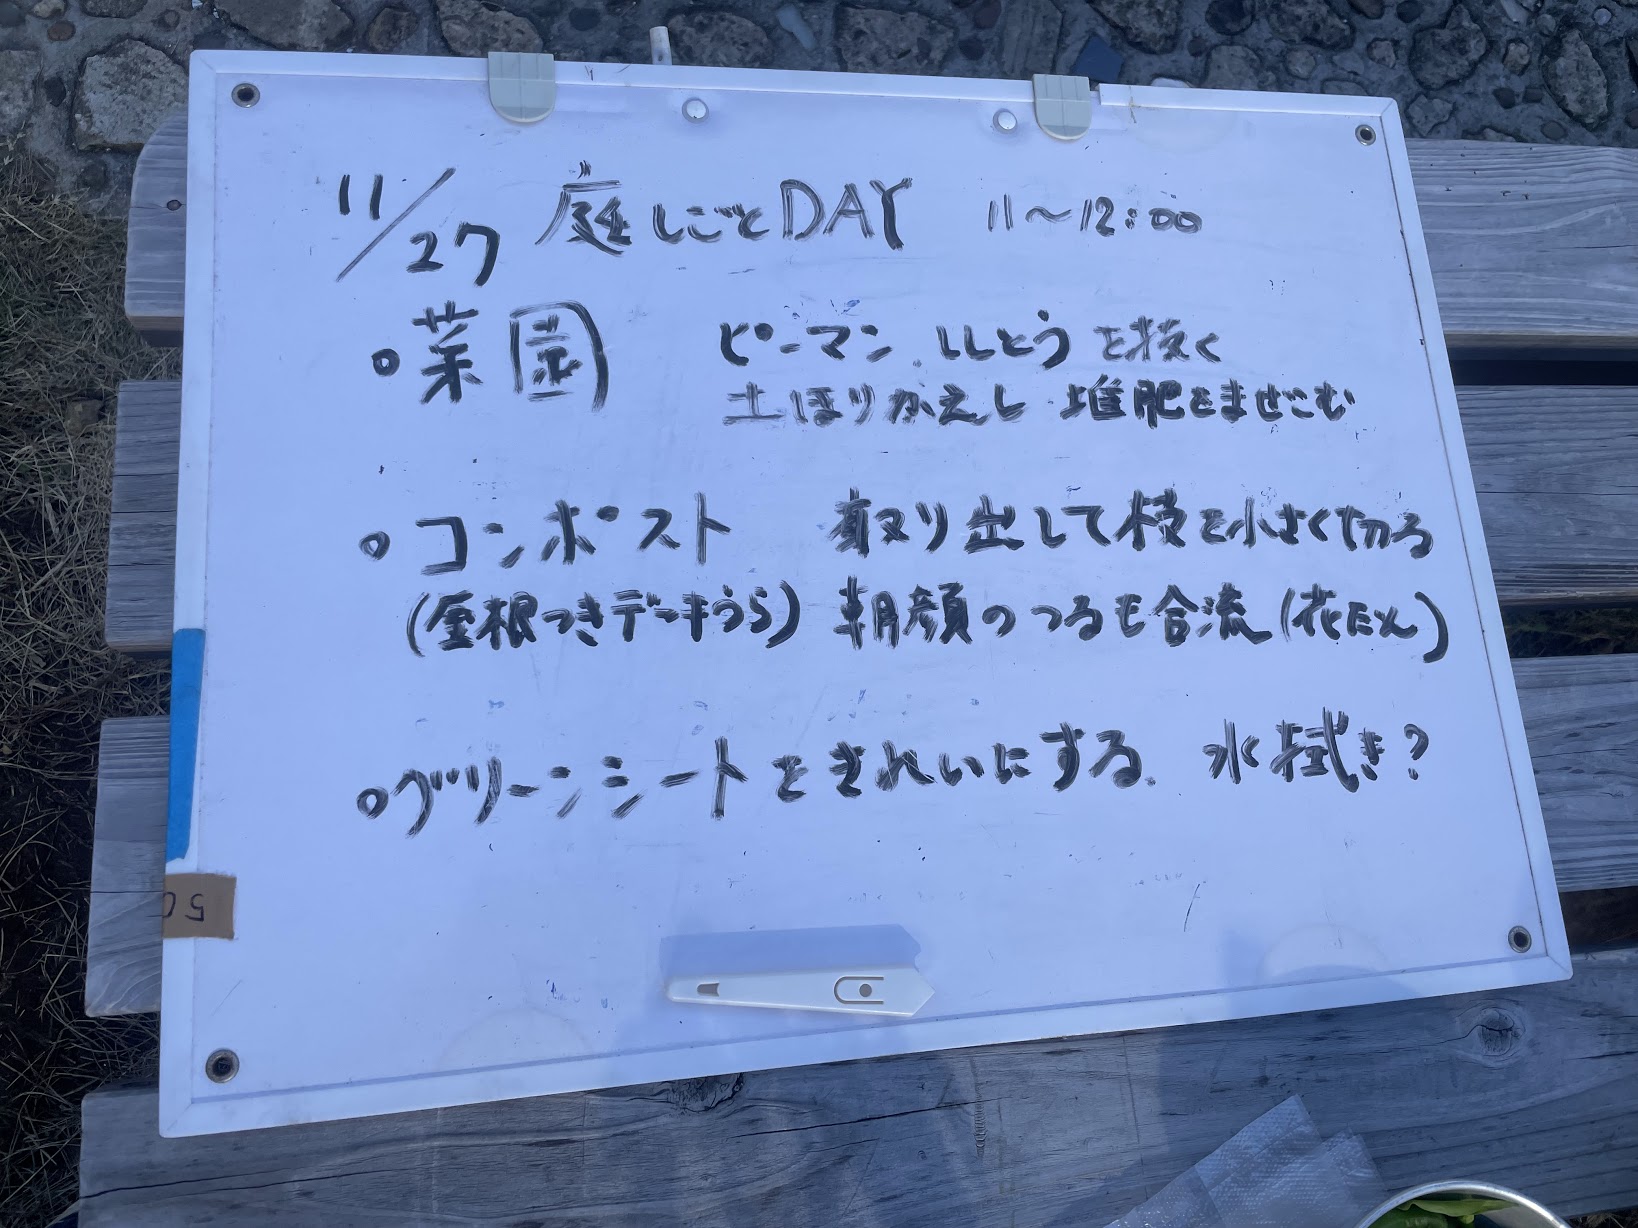 11/27 庭しごとDAY 11〜12:00
○菜園 ピーマン ししとうを抜く
土ほりかえし 堆肥をまぜこむ
○コンポスト 取り出して枝を小さく切る
(屋根つきデッキうら) 朝顔のつるも合流(花だん)
○グリーンシートをきれいにする. 水拭き?
50